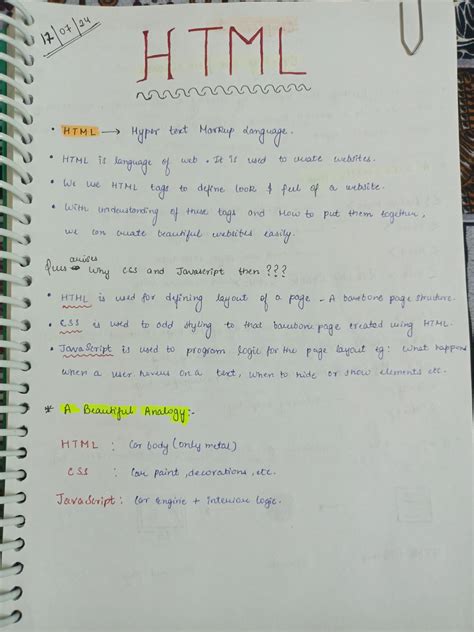 17/07/24
HTML
• HTML → Hyper text Markup Language.
• HTML is language of web. It is used to create websites.
• We use HTML tags to define look & feel of a website.
• With understanding of these tags and How to put them together,
we can create beautiful websites easily.
arises
Ques why CSS and Javascript then ???
• HTML is used for defining layout of a page - A barebone page structure.
• CSS is used to add styling to that barebone page created using HTML.
• JavaScript is used to program logic for the page layout eg: What happens
when a user hovers on a text, when to hide or show elements etc.
* A Beautiful Analogy:-
HTML : Car body (only metal)
CSS : Car paint, decorations, etc.
JavaScript : Car engine + interior logic.